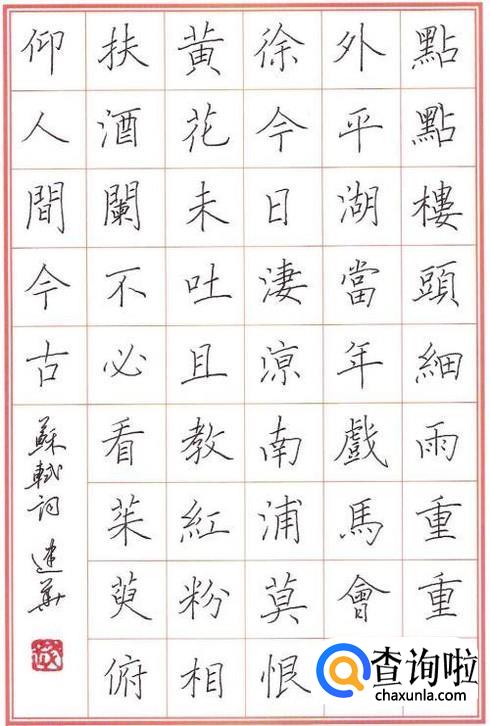 點點樓頭細雨重重
外平湖當年戲馬會
徐今日淒涼南浦莫恨
黃花未吐且教紅粉相
扶酒闌不必看茱萸俯
仰人間今古
蘇軾詞 建華
查询啦
chaxunla.com